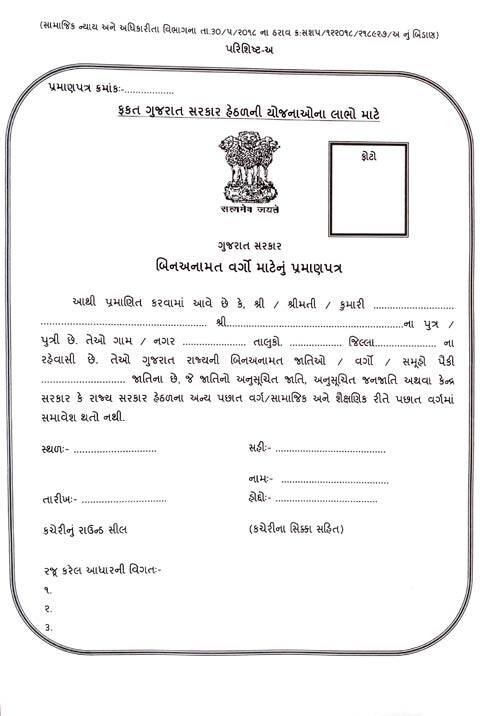 (સામાજિક ન્યાય અને અધિકારીતા વિભાગના તા.30/૫/૨૦૧૮ ના ઠરાવ ક:સશપ/૧૨૨૦૧૮/૨૧૮૯૨૭/અ નું બિડાણ)
પરિશિષ્ટ-અ
પ્રમાણપત્ર ક્રમાંક:-..................
ફકત ગુજરાત સરકાર હેઠળની યોજનાઓના લાભો માટે
ફોટો
सत्यमेव जयते
ગુજરાત સરકાર
બિનઅનામત વર્ગો માટેનું પ્રમાણપત્ર
આથી પ્રમાણિત કરવામાં આવે છે કે, શ્રી / શ્રીમતી / કુમારી ............................
............................................................ શ્રી............................................................ના પુત્ર /
પુત્રી છે. તેઓ ગામ / નગર ...................... તાલુકો. .................. જિલ્લા..................... ના
રહેવાસી છે. તેઓ ગુજરાત રાજ્યની બિનઅનામત જાતિઓ / વર્ગો / સમૂહો પૈકી
............................. જાતિના છે, જે જાતિનો અનુસૂચિત જાતિ, અનુસૂચિત જનજાતિ અથવા કેન્દ્ર
સરકાર કે રાજ્ય સરકાર હેઠળના અન્ય પછાત વર્ગ/સામાજિક અને શૈક્ષણિક રીતે પછાત વર્ગમાં
સમાવેશ થતો નથી.
સ્થળ:- ............................
સહી:- .....................................
નામ:- ..............................................
તારીખ:- .............................
હોદ્દો:- .............................................
કચેરીનું રાઉન્ડ સીલ
(કચેરીના સિક્કા સહિત)
રજૂ કરેલ આધારની વિગત:-
૧.
૨.
3.